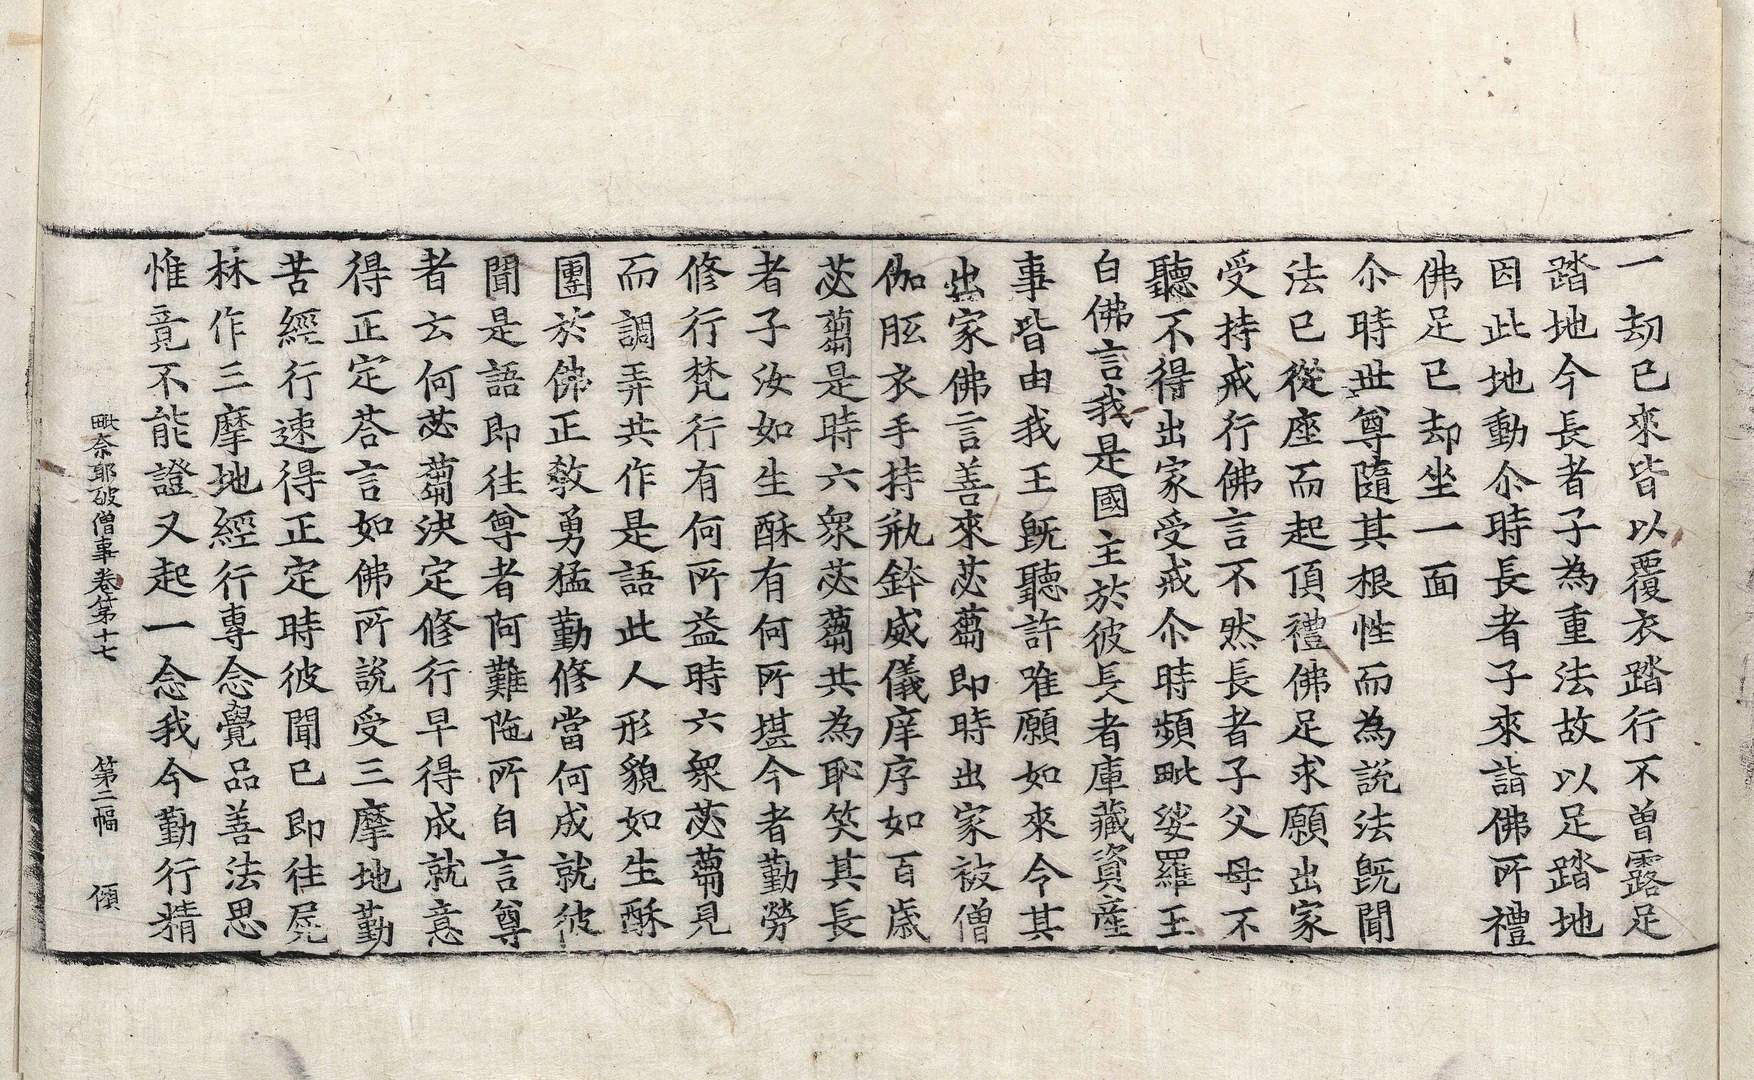 一劫已來皆以覆衣踏行不曾露足
踏地今長者子為重法故以足踏地
因此地動尒時長者子來詣佛所禮
佛足已却坐一面
尒時世尊隨其根性而為說法既聞
法已從座而起頂禮佛足求願出家
受持戒行佛言不然長者子父母不
聽不得出家受戒尒時頻毗娑羅王
白佛言我是國主於彼長者庫藏資產
事皆由我王既聽許唯願如來令其
出家佛言善來苾蒭即時出家被僧
伽胝衣手持瓶鉢威儀庠序如百歲
苾蒭是時六衆苾蒭共為恥笑其長
者子汝如生酥有何所堪今者勤勞
修行梵行有何所益時六衆苾蒭見
而調弄共作是語此人形貌如生酥
團於佛正教勇猛勤修當何成就彼
聞是語即往尊者阿難陁所白言尊
者云何苾蒭決定修行早得成就意
得正定荅言如佛所說受三摩地勤
苦經行速得正定時彼聞已即往屍
林作三摩地經行專念覺品善法思
惟竟不能證又起一念我今勤行精
毗奈耶破僧事卷第十七 第二幅 傾